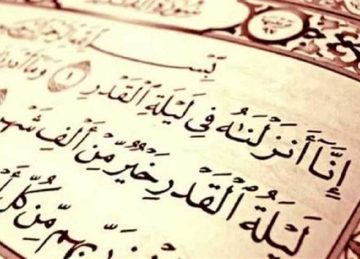 بِسْمِ ٱللَّهِ
إِنَّآ أَنزَلْنَٰهُ فِى لَيْلَةِ ٱلْقَدْرِ ١ وَمَآ
لَيْلَةُ ٱلْقَدْرِ خَيْرٌ مِّنْ أَلْفِ شَهْرٍ
رَبِّهِم مِّن كُلِّ